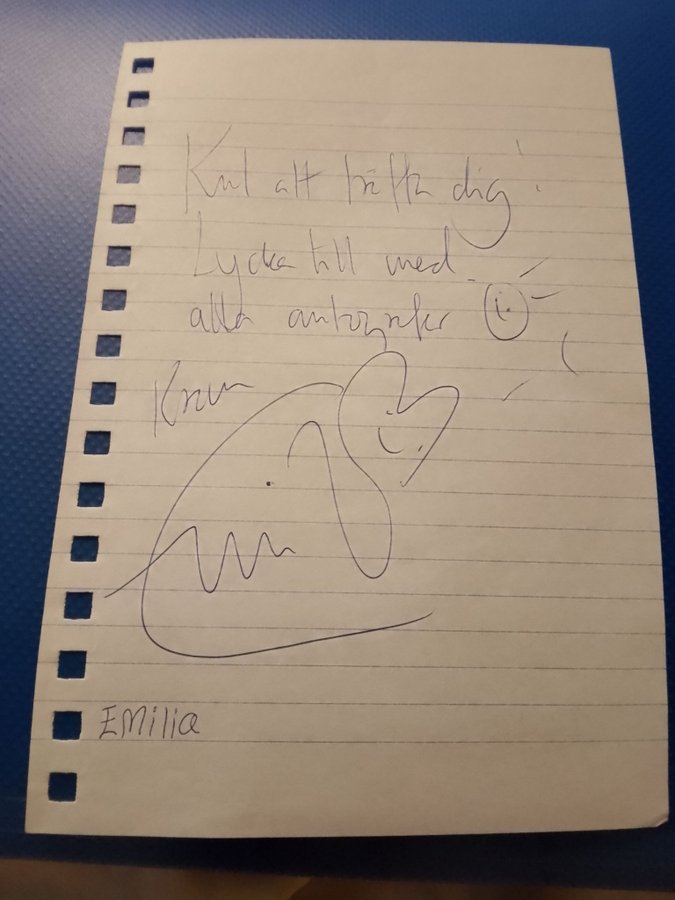 Kul att träffa dig!
Lycka till med
alla autografer
Kram
EMilia